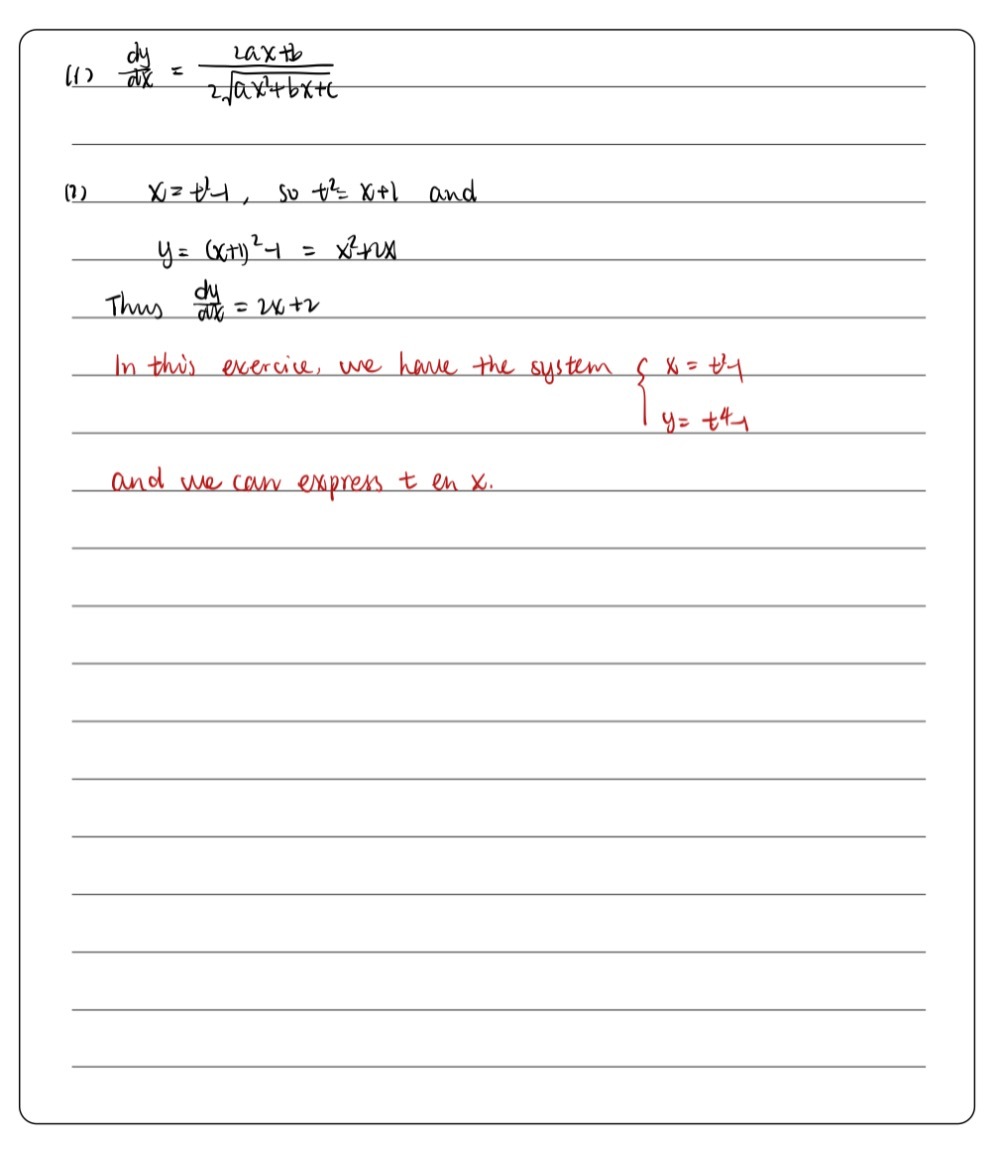 (1) dy/dx = (2ax+b)/(2√(ax²+bx+c))
(2) x = t²-1, so t² = x+1 and
y = (x+1)²-1 = x²+2x
Thus dy/dx = 2x+2
In this exercice, we have the system { x = t²-1
y = t⁴-1
and we can express t en x.